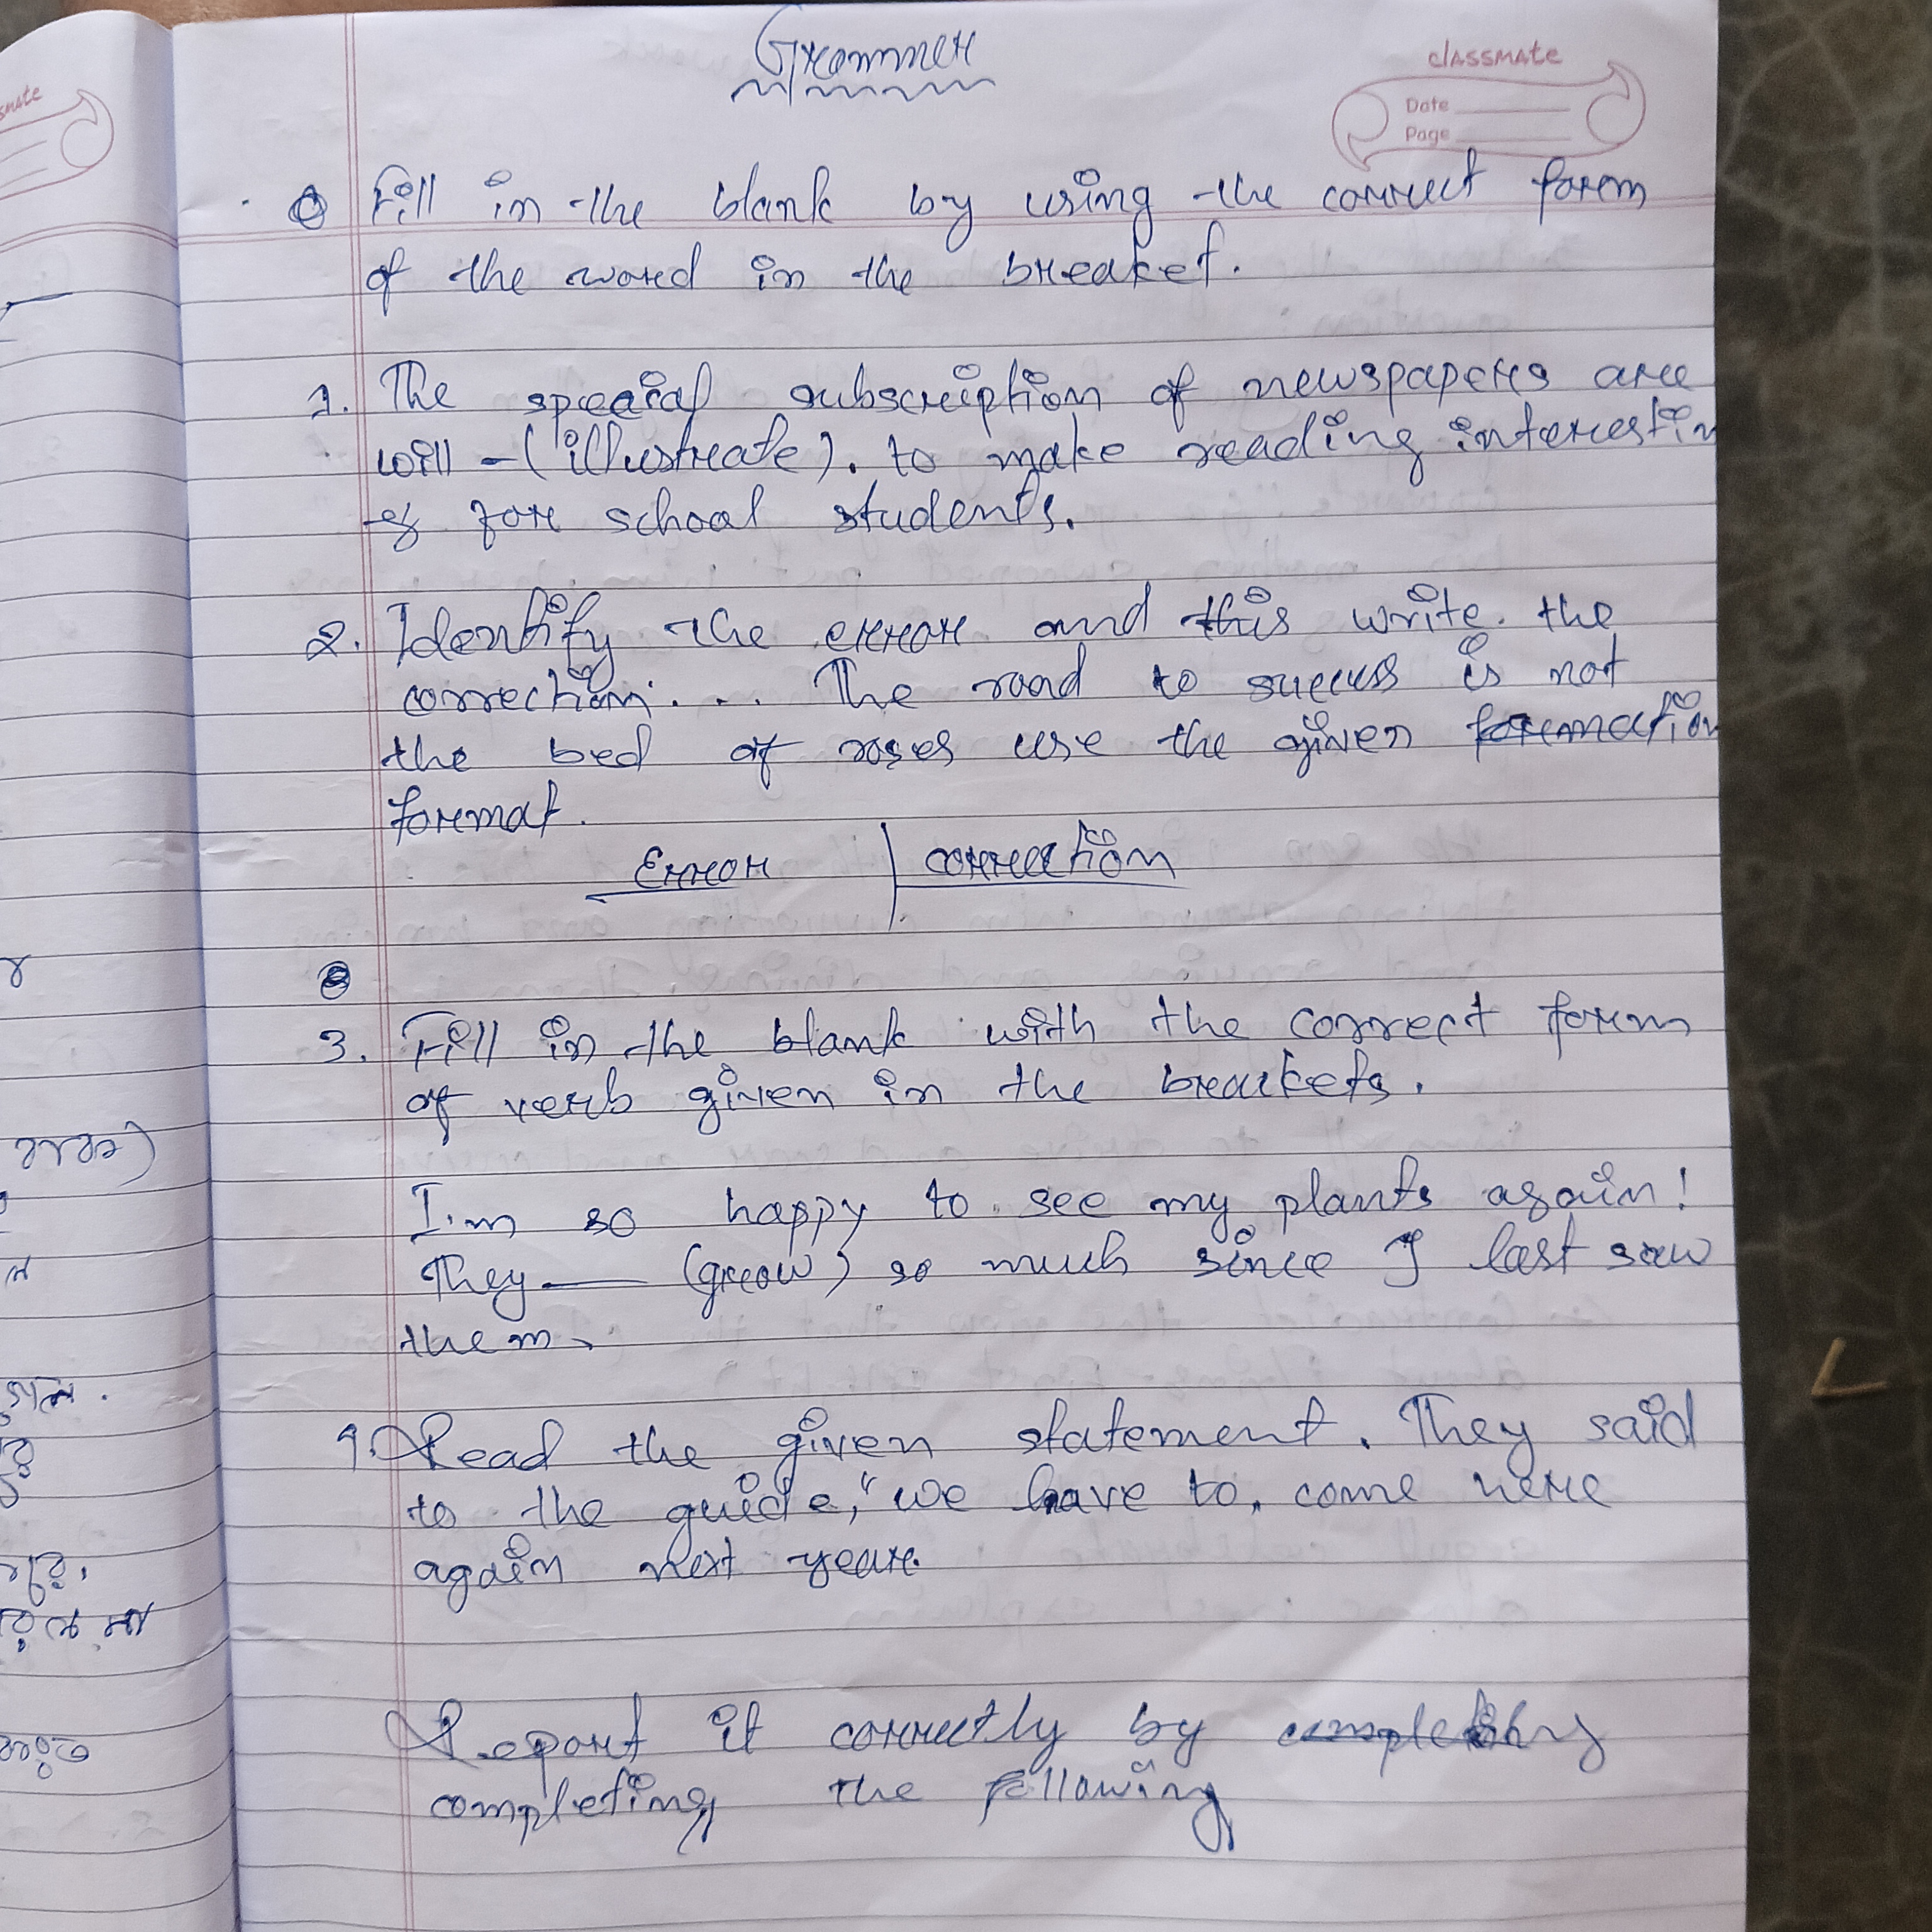 Grammer
classmate
Date
Page
Fill in the blank by using the correct form
of the word in the breaket.
1. The special subscription of newspapers are
will - (illustrate). to make reading interestin
g for school students.
2. Identify the error and this write. the
correction: . . The road to success is not
the bed of roses use the given formation
format.
Error | correction
3. Fill in the blank with the correct form
of verb given in the brackets.
I.m so happy to see my plants again!
They ___ (grow) so much since I last saw
them.
4. Read the given statement. They said
to the guide, "we have to, come here
again next year.
Report it correctly by
completing the following
smate
গুলো.